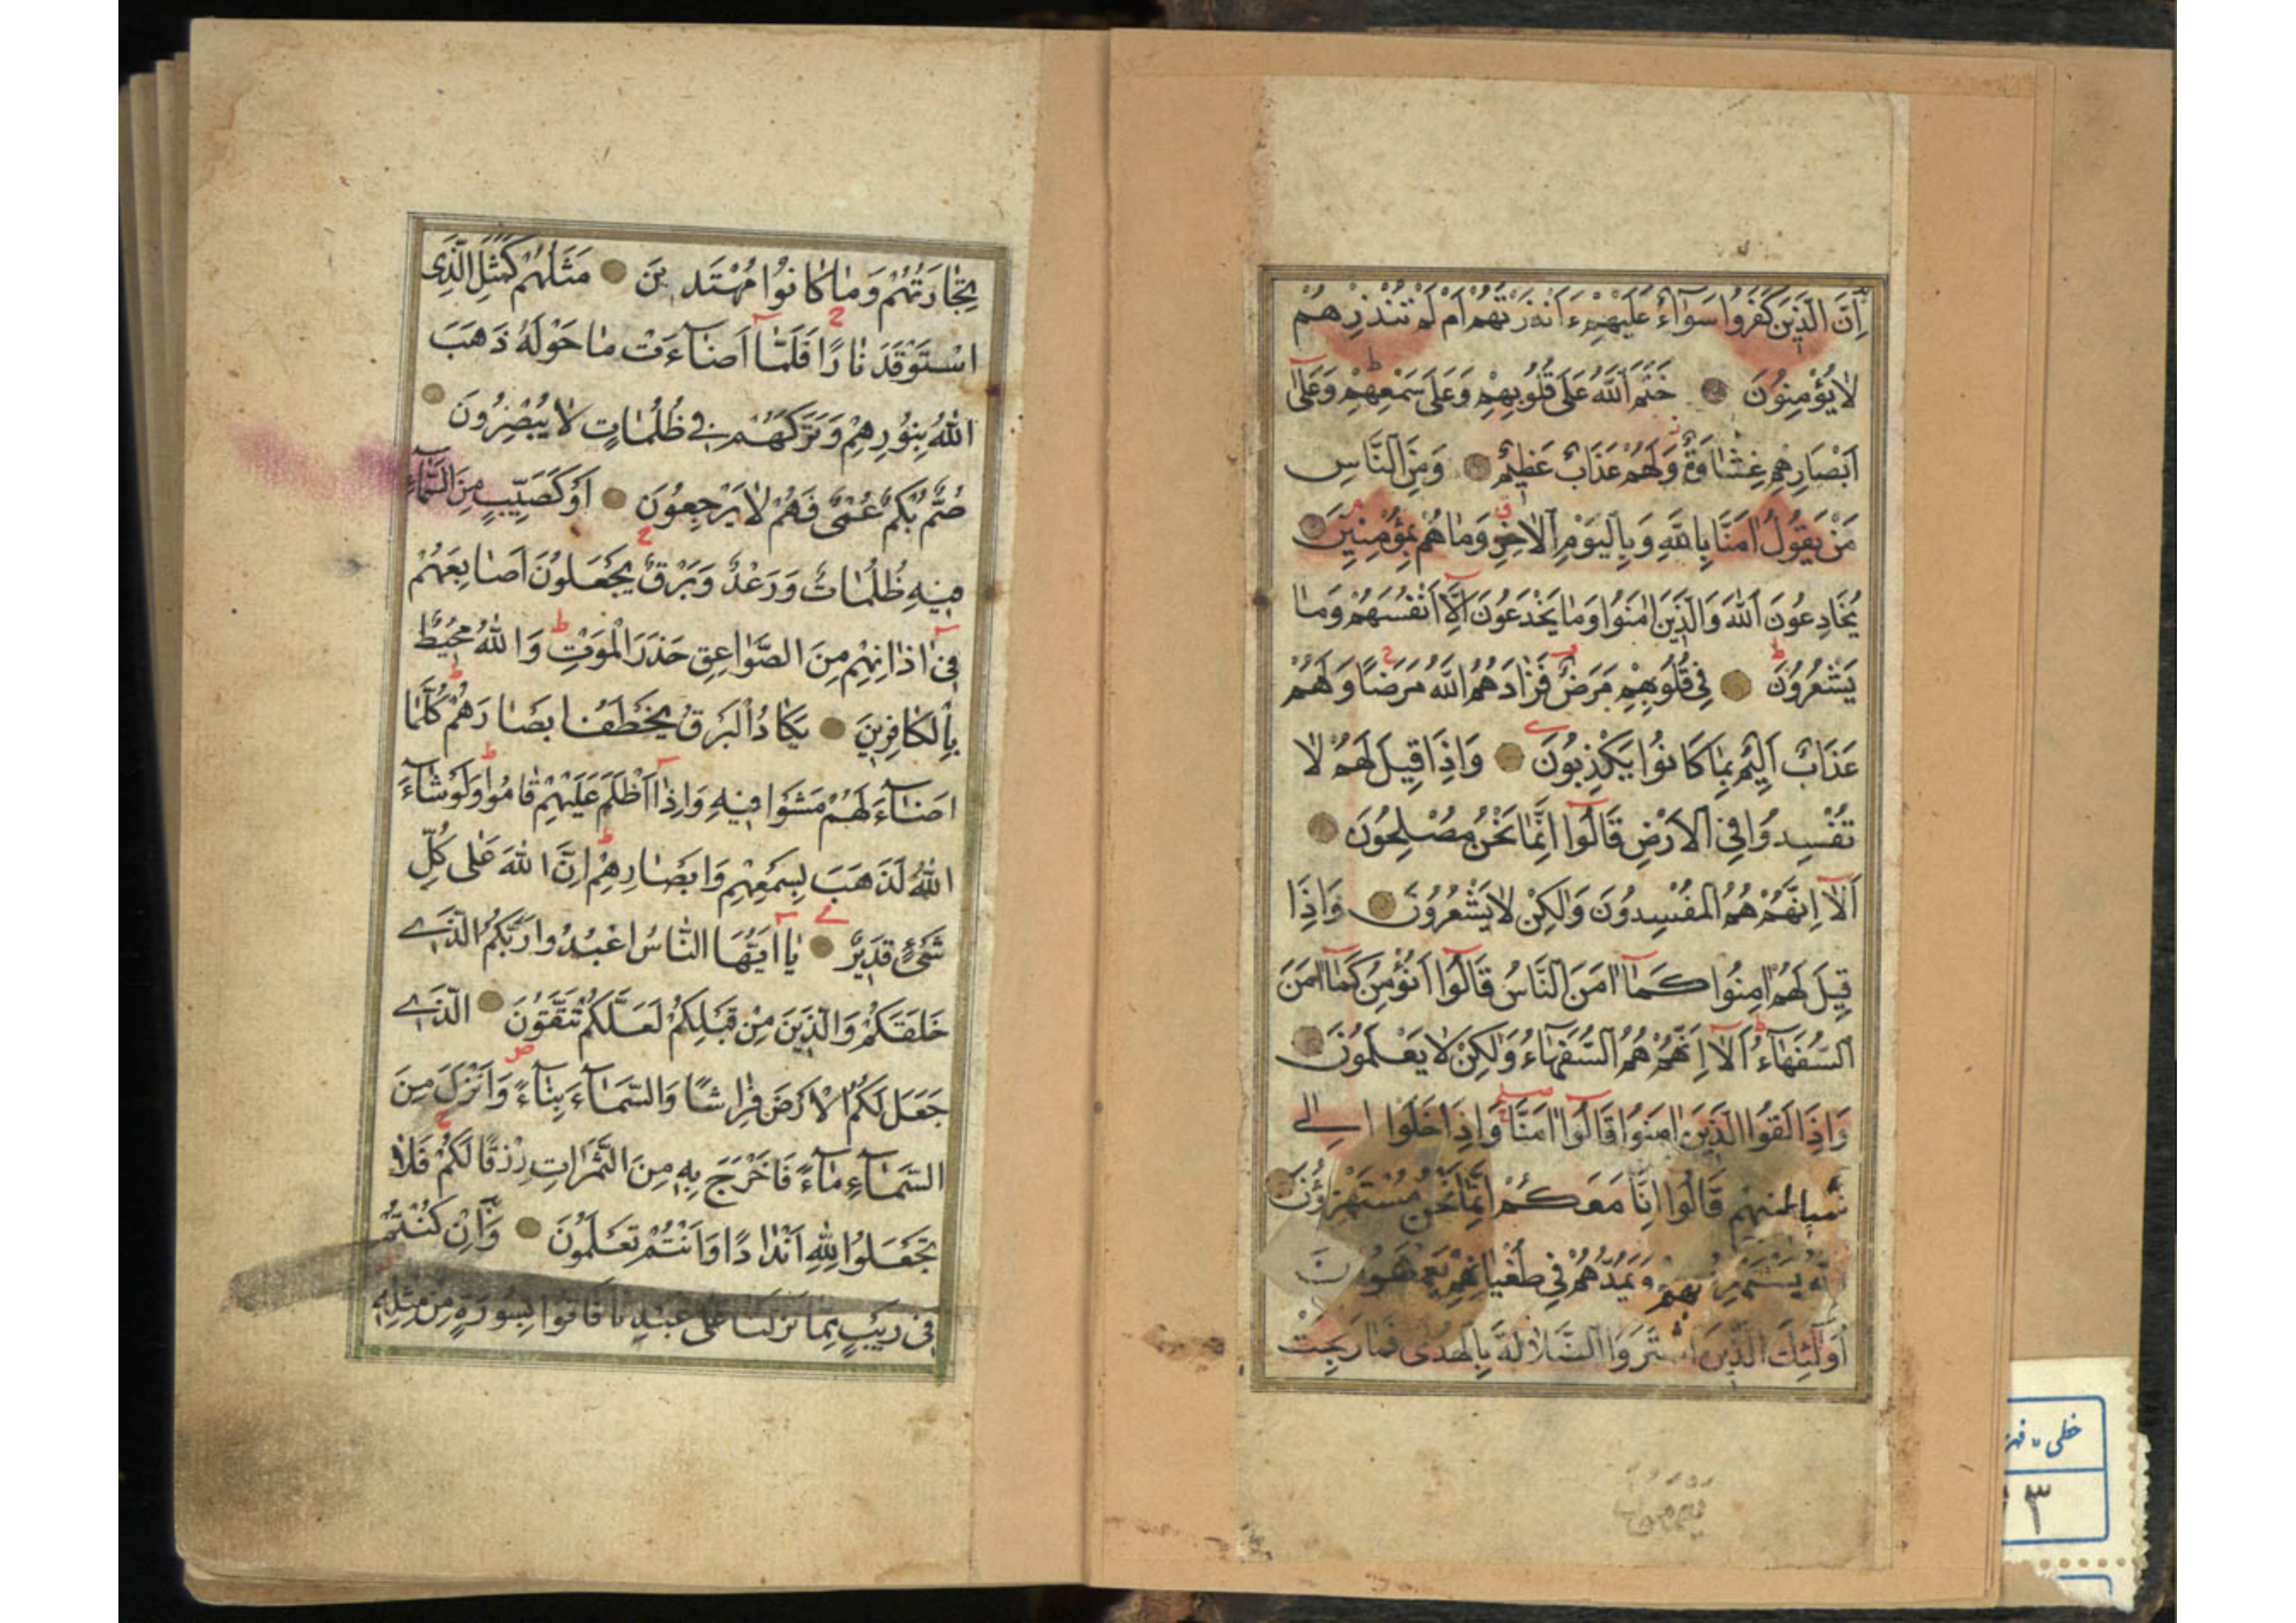 اِنَّ الَّذٖينَ كَفَرُوا سَوَآءٌ عَلَيْهِمْ ءَاَنْذَرْتَهُمْ اَمْ لَمْ تُنْذِرْهُمْ
لَا يُؤْمِنُونَ خَتَمَ اللّٰهُ عَلٰى قُلُوبِهِمْ وَعَلٰى سَمْعِهِمْ وَعَلٰٓى
اَبْصَارِهِمْ غِشَاوَةٌ وَلَهُمْ عَذَابٌ عَظٖيمٌ وَمِنَ النَّاسِ
مَنْ يَقُولُ اٰمَنَّا بِاللّٰهِ وَبِالْيَوْمِ الْاٰخِرِ وَمَا هُمْ بِمُؤْمِنٖينَ
يُخَادِعُونَ اللّٰهَ وَالَّذٖينَ اٰمَنُوا وَمَا يَخْدَعُونَ اِلَّٓا اَنْفُسَهُمْ وَمَا
يَشْعُرُونَ فٖى قُلُوبِهِمْ مَرَضٌ فَزَادَهُمُ اللّٰهُ مَرَضًا وَلَهُمْ
عَذَابٌ اَلٖيمٌ بِمَا كَانُوا يَكْذِبُونَ وَاِذَا قٖيلَ لَهُمْ لَا
تُفْسِدُوا فِى الْاَرْضِ قَالُٓوا اِنَّمَا نَحْنُ مُصْلِحُونَ
اَلَٓا اِنَّهُمْ هُمُ الْمُفْسِدُونَ وَلٰكِنْ لَا يَشْعُرُونَ وَاِذَا
قٖيلَ لَهُمْ اٰمِنُوا كَمَٓا اٰمَنَ النَّاسُ قَالُٓوا اَنُؤْمِنُ كَمَٓا اٰمَنَ
السُّفَهَٓاءُ اَلَٓا اِنَّهُمْ هُمُ السُّفَهَٓاءُ وَلٰكِنْ لَا يَعْلَمُونَ
وَاِذَا لَقُوا الَّذٖينَ اٰمَنُوا قَالُٓوا اٰمَنَّا وَاِذَا خَلَوْا اِلٰى
قَالُٓوا اِنَّا مَعَكُمْ اِنَّمَا نَحْنُ مُسْتَهْزِؤُنَ
بِهِمْ وَيَمُدُّهُمْ فٖى طُغْيَانِهِمْ يَعْمَهُونَ
اُولٰٓئِكَ الَّذٖينَ اشْتَرَوُا الضَّلَالَةَ بِالْهُدٰى فَمَا رَبِحَتْ
تِجَارَتُهُمْ وَمَا كَانُوا مُهْتَدٖينَ مَثَلُهُمْ كَمَثَلِ الَّذِى
اسْتَوْقَدَ نَارًا فَلَمَّٓا اَضَٓاءَتْ مَا حَوْلَهُ ذَهَبَ
اللّٰهُ بِنُورِهِمْ وَتَرَكَهُمْ فٖى ظُلُمَاتٍ لَا يُبْصِرُونَ
صُمٌّ بُكْمٌ عُمْىٌ فَهُمْ لَا يَرْجِعُونَ اَوْ كَصَيِّبٍ مِنَ السَّمَٓاءِ
فٖيهِ ظُلُمَاتٌ وَرَعْدٌ وَبَرْقٌ يَجْعَلُونَ اَصَابِعَهُمْ
فٖٓى اٰذَانِهِمْ مِنَ الصَّوَاعِقِ حَذَرَ الْمَوْتِ وَاللّٰهُ مُحٖيطٌ
بِالْكَافِرٖينَ يَكَادُ الْبَرْقُ يَخْطَفُ ابْصَارَهُمْ كُلَّمَٓا
اَضَٓاءَ لَهُمْ مَشَوْا فٖيهِ وَاِذَٓا اَظْلَمَ عَلَيْهِمْ قَامُوا وَلَوْ شَٓاءَ
اللّٰهُ لَذَهَبَ بِسَمْعِهِمْ وَاَبْصَارِهِمْ اِنَّ اللّٰهَ عَلٰى كُلِّ
شَىْءٍ قَدٖيرٌ يَٓا اَيُّهَا النَّاسُ اعْبُدُوا رَبَّكُمُ الَّذٖى
خَلَقَكُمْ وَالَّذٖينَ مِنْ قَبْلِكُمْ لَعَلَّكُمْ تَتَّقُونَ الَّذٖى
جَعَلَ لَكُمُ الْاَرْضَ فِرَاشًا وَالسَّمَٓاءَ بِنَٓاءً وَاَنْزَلَ مِنَ
السَّمَٓاءِ مَٓاءً فَاَخْرَجَ بِهٖ مِنَ الثَّمَرَاتِ رِزْقًا لَكُمْ فَلَا
تَجْعَلُوا لِلّٰهِ اَنْدَادًا وَاَنْتُمْ تَعْلَمُونَ وَاِنْ كُنْتُمْ
فٖى رَيْبٍ مِمَّا نَزَّلْنَا عَلٰى عَبْدِنَا فَاْتُوا بِسُورَةٍ مِنْ مِثْلِهٖ
خطی
٣